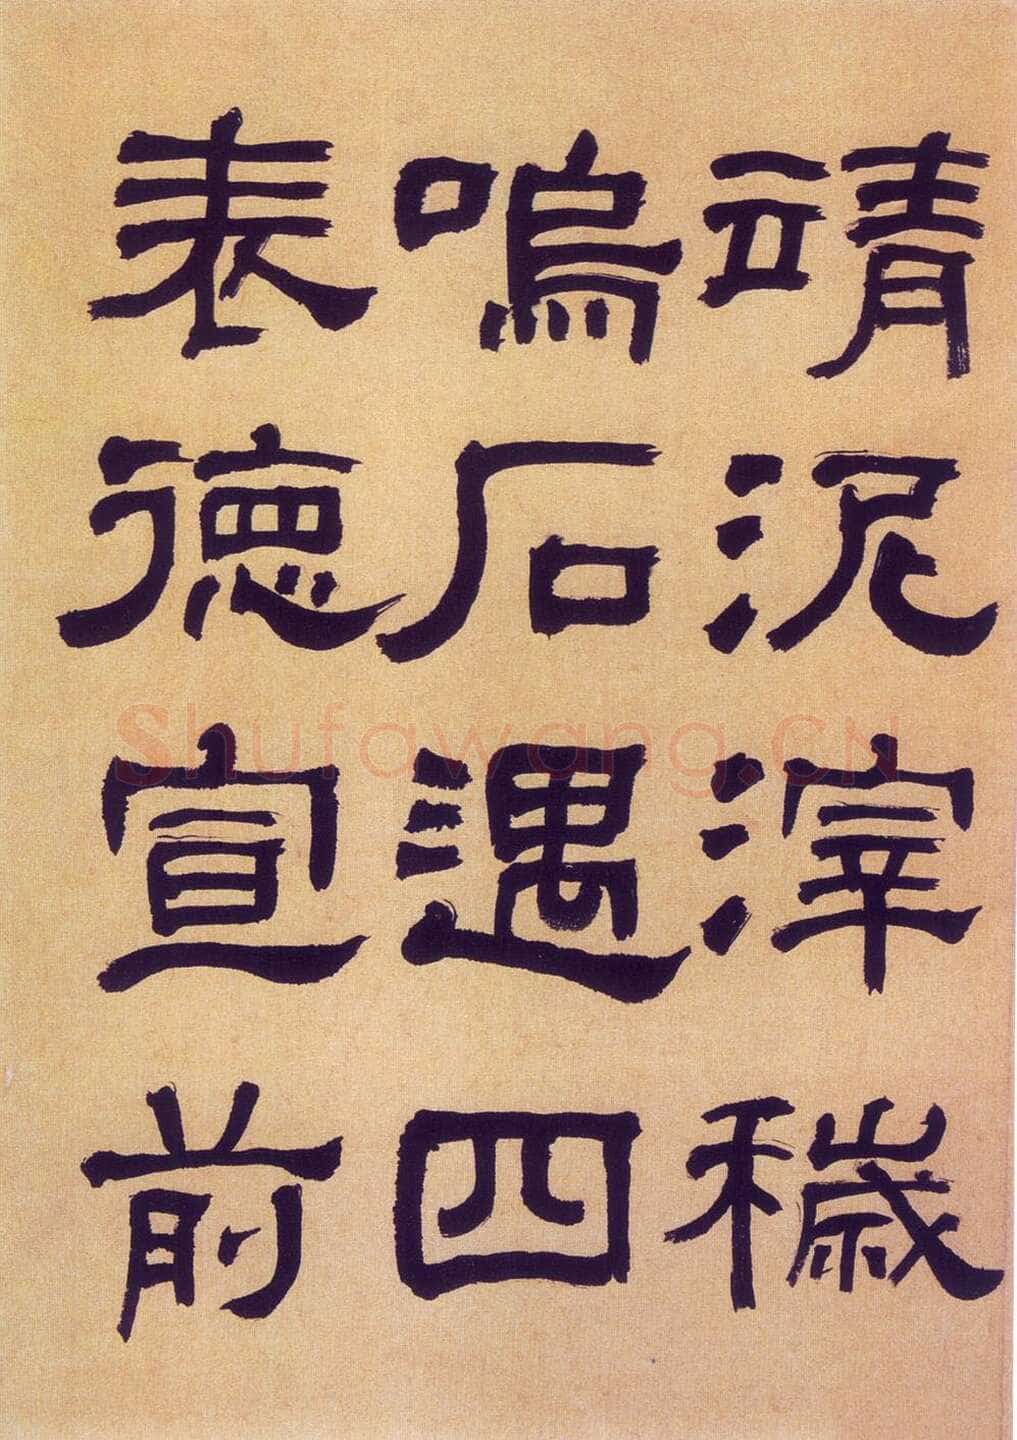 靖泥滓穢
嗚石遇四
表德宣前
Shufawang.CN